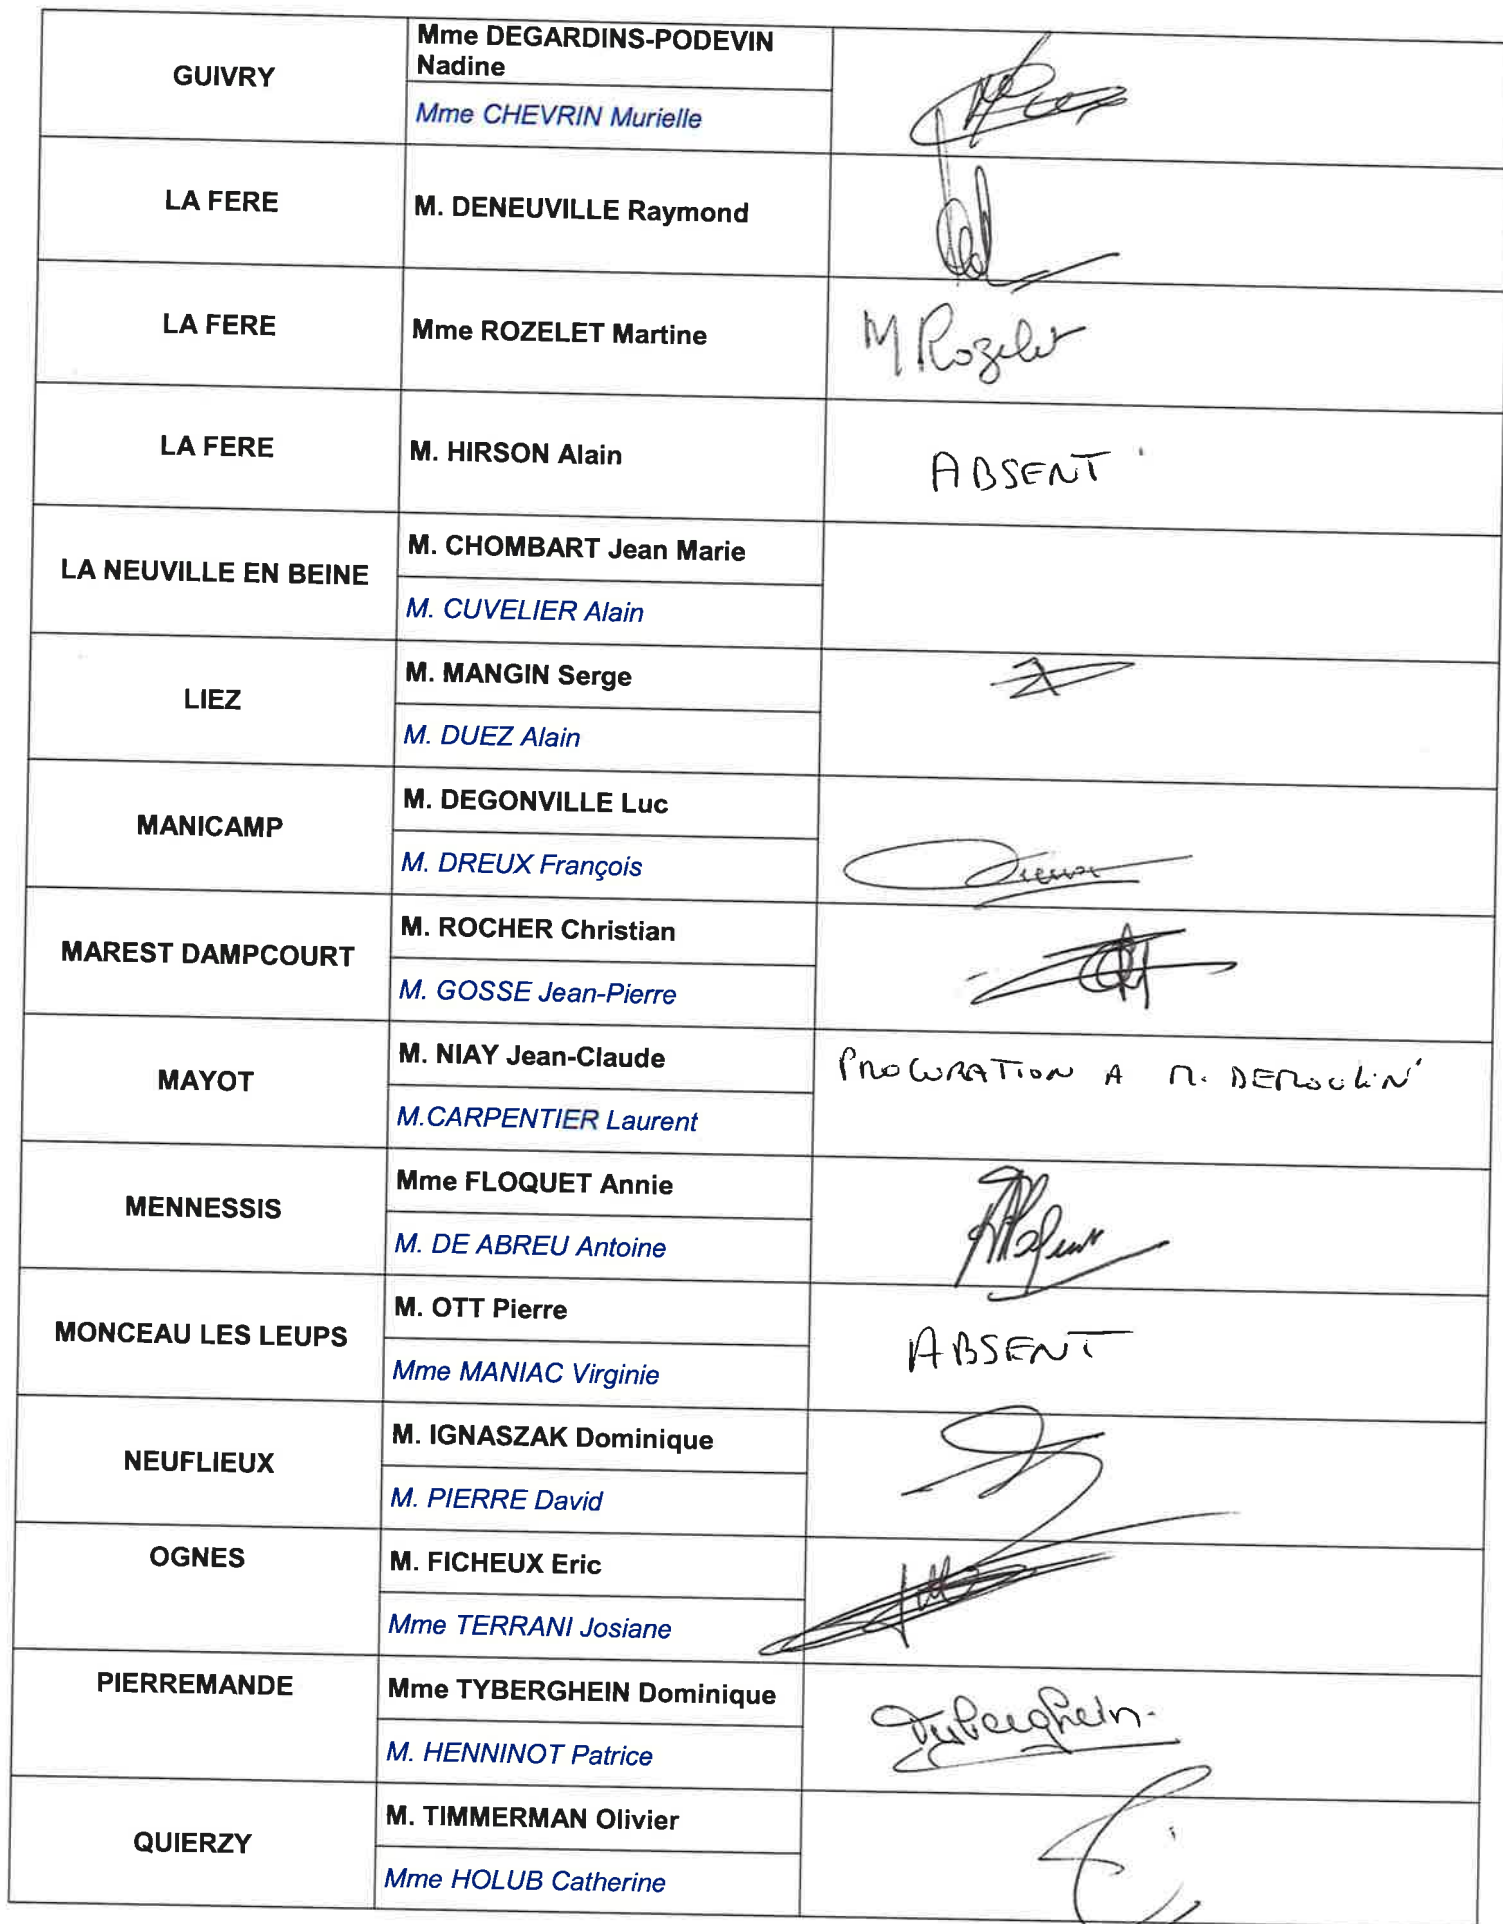 GUIVRY
Mme DEGARDINS-PODEVIN
Nadine
Mme CHEVRIN Murielle
LA FERE
M. DENEUVILLE Raymond
LA FERE
Mme ROZELET Martine
M Rozelet
LA FERE
M. HIRSON Alain
ABSENT
LA NEUVILLE EN BEINE
M. CHOMBART Jean Marie
M. CUVELIER Alain
LIEZ
M. MANGIN Serge
M. DUEZ Alain
MANICAMP
M. DEGONVILLE Luc
M. DREUX François
Dreux
MAREST DAMPCOURT
M. ROCHER Christian
M. GOSSE Jean-Pierre
MAYOT
M. NIAY Jean-Claude
M.CARPENTIER Laurent
PROCURATION A M. DEMOULIN
MENNESSIS
Mme FLOQUET Annie
M. DE ABREU Antoine
MONCEAU LES LEUPS
M. OTT Pierre
Mme MANIAC Virginie
ABSENT
NEUFLIEUX
M. IGNASZAK Dominique
M. PIERRE David
OGNES
M. FICHEUX Eric
Mme TERRANI Josiane
PIERREMANDE
Mme TYBERGHEIN Dominique
M. HENNINOT Patrice
Tyberghein
QUIERZY
M. TIMMERMAN Olivier
Mme HOLUB Catherine